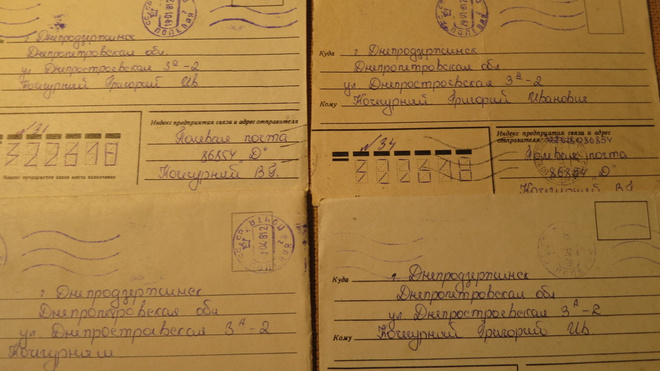 г. Днепродзержинск
Днепропетровская обл
ул Днепростроевская 3А-2
Кочкурний Григорий Ив
Индекс предприятия связи и адрес отправителя
№31
Полевая почта
322618
86854 "D"
Кочкурний В.Г.
ПОЛЕВАЯ
Куда г Днепродзержинск
Днепропетровская обл
ул Днепростроевская 3А-2
Кому Кочкурний Григорий Иванович
Индекс предприятия связи и адрес
отправителя
№34
Полевая почта
322618
86854 "D"
Кочкурний В.Г.
г Днепродзержинск
Днепропетровская обл
ул Днепростроевская 3А-2
Куда г Днепродзержинск
Днепропетровская обл
ул Днепростроевская 3А-2
Кому Кочкурний Григорий Ив